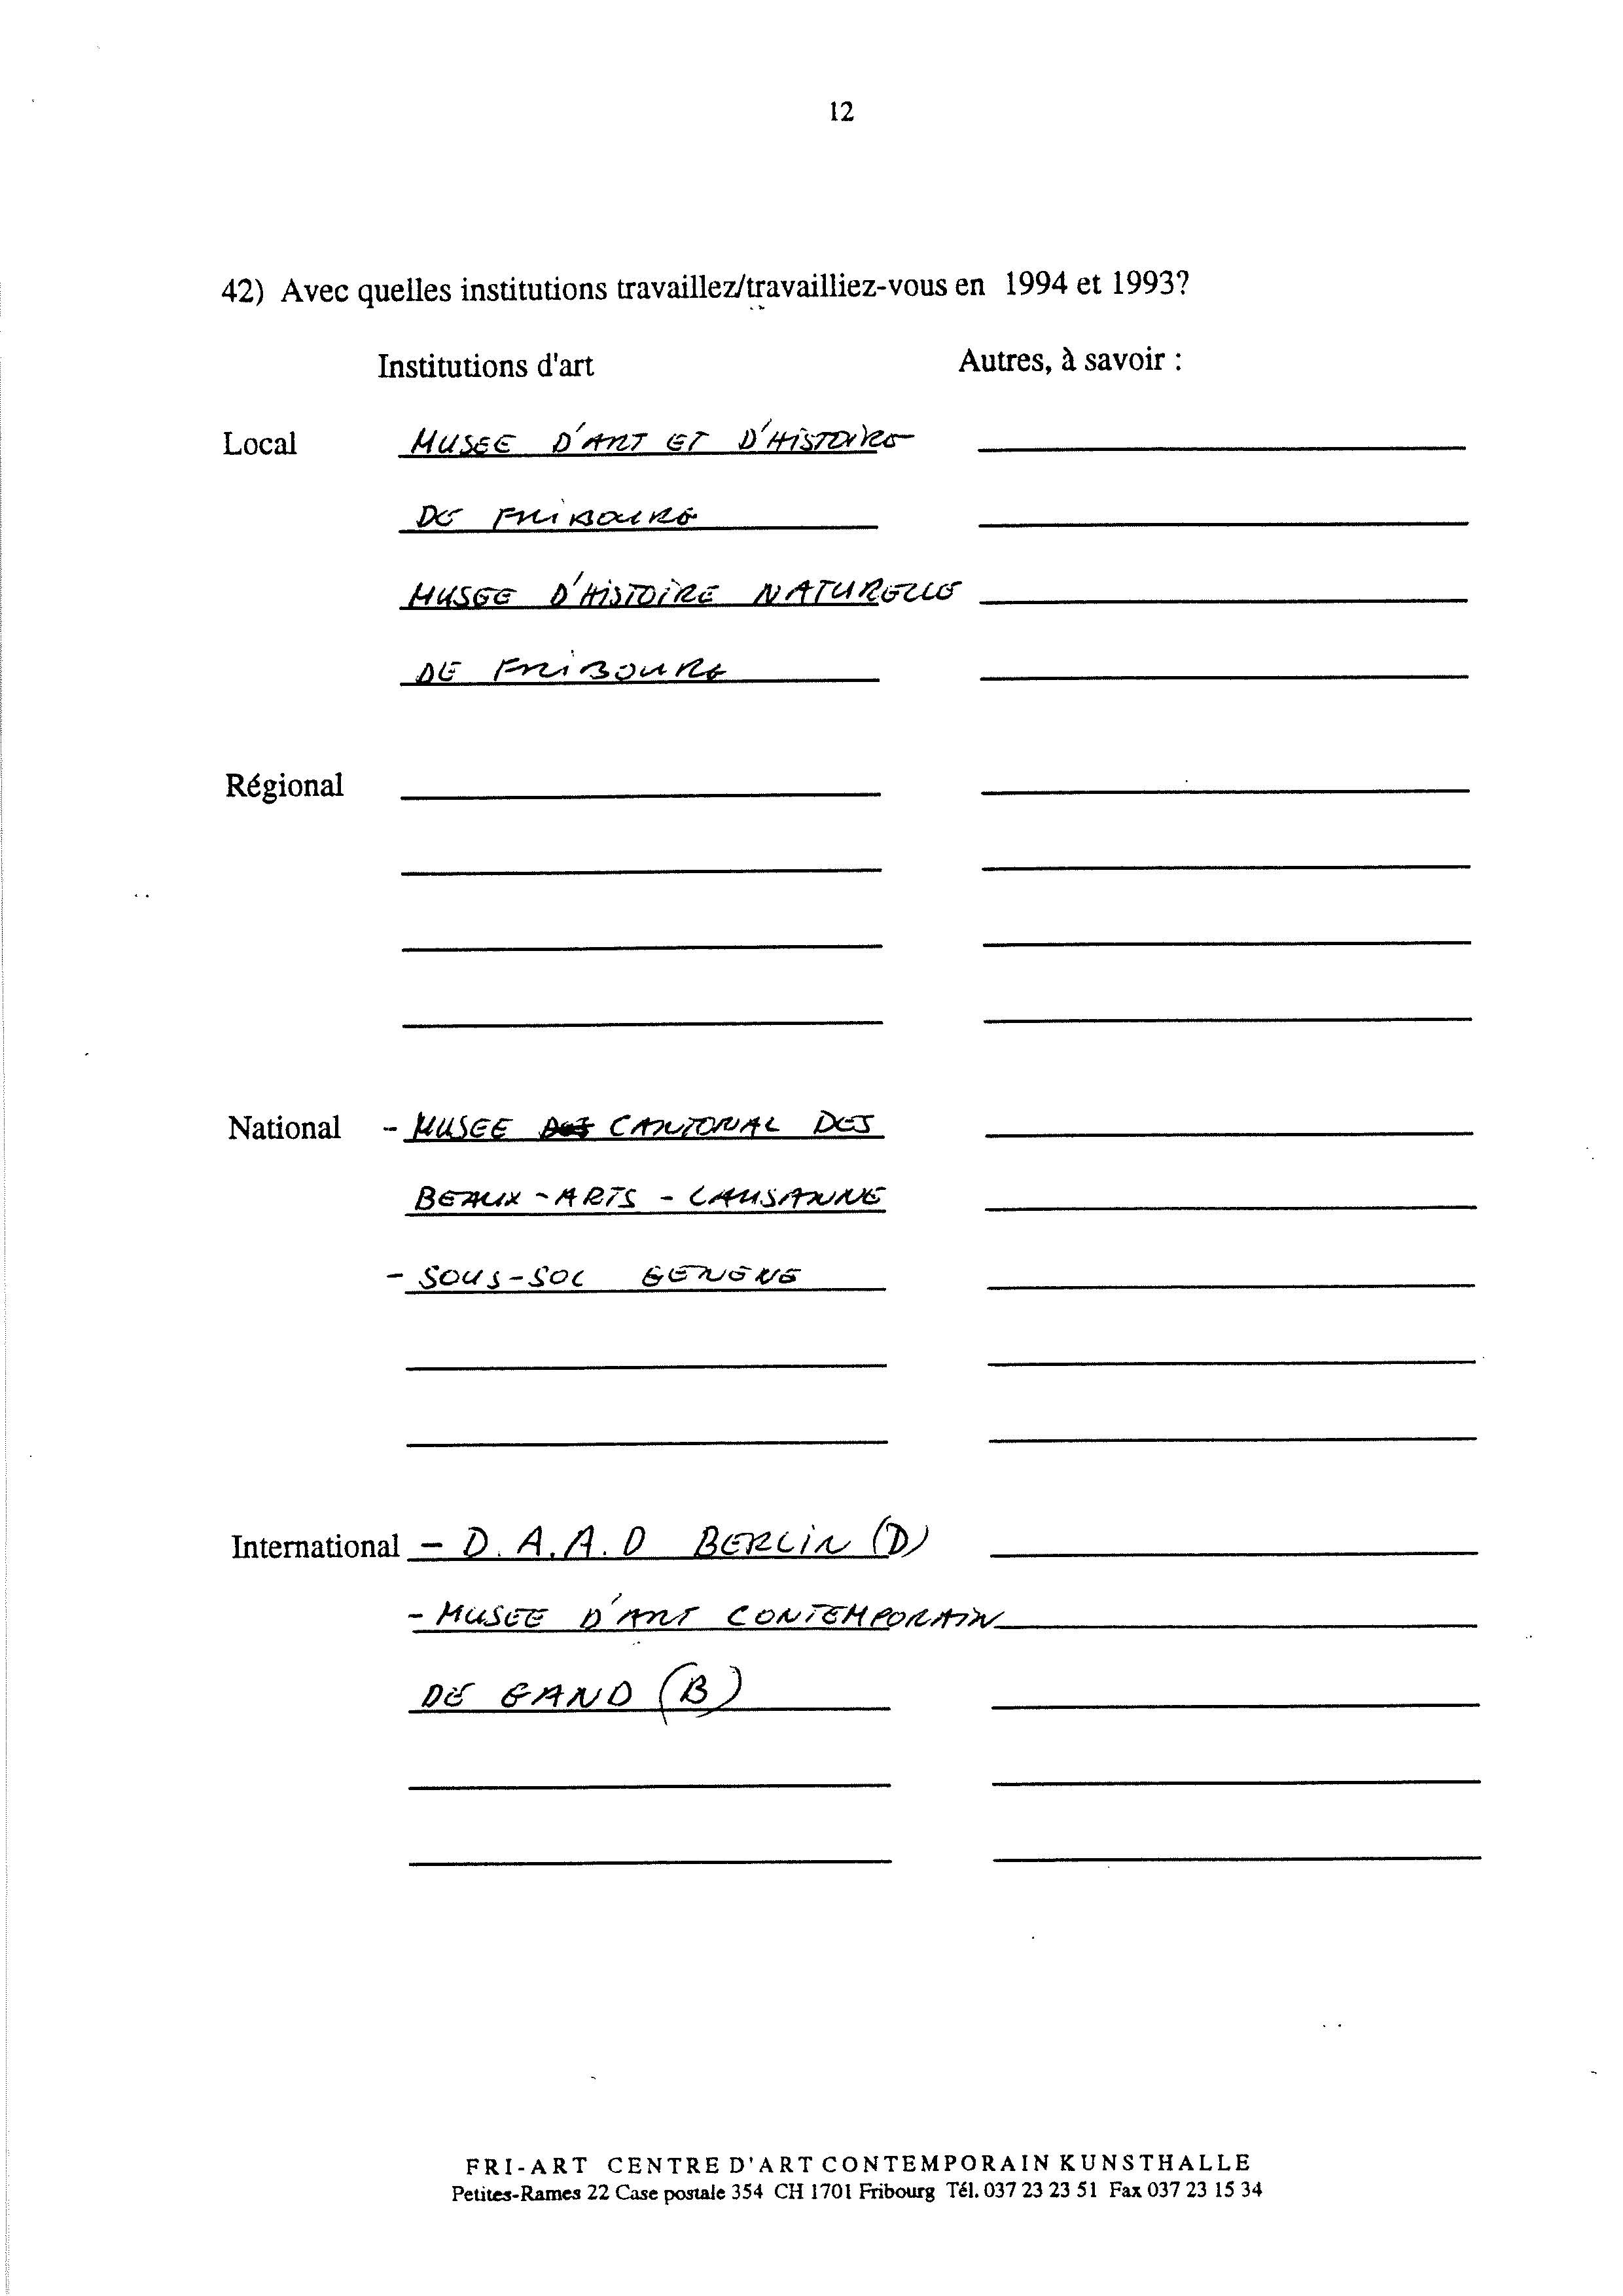 12
42) Avec quelles institutions travaillez/travailliez-vous en 1994 et 1993?
Institutions d'art Autres, à savoir :
Local MUSEE D'ART ET D'HISTOIRE
DE FRIBOURG
MUSEE D'HISTOIRE NATURELLE
DE FRIBOURG
Régional
National - MUSEE DES CANTONAL DES
BEAUX-ARTS - LAUSANNE
- SOUS-SOL GENEVE
International - D.A.A.D BERLIN (D)
- MUSEE D'ART CONTEMPORAIN
DE GAND (B)
FRI-ART CENTRE D'ART CONTEMPORAIN KUNSTHALLE
Petites-Rames 22 Case postale 354 CH 1701 Fribourg Tél. 037 23 23 51 Fax 037 23 15 34